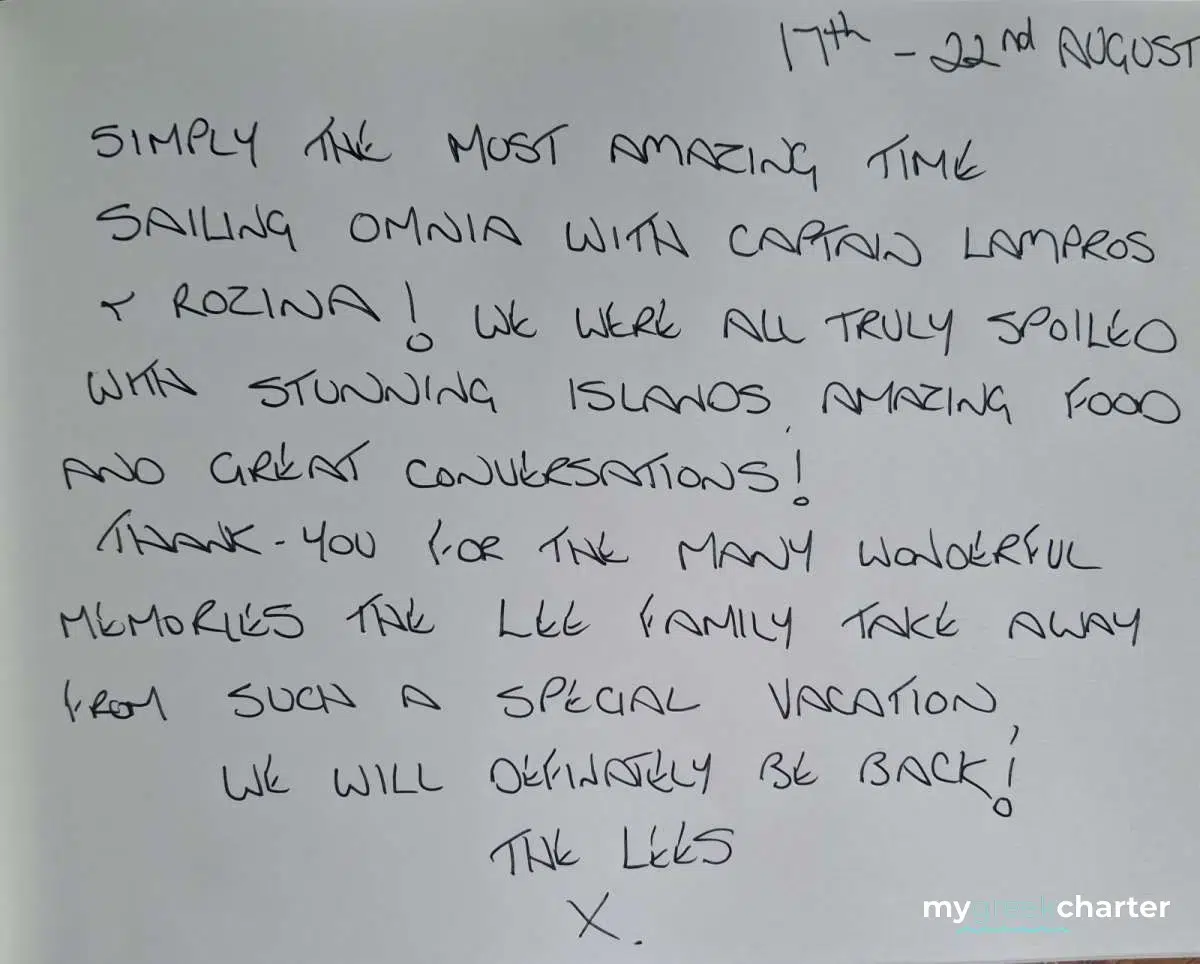 17th - 22nd AUGUST
SIMPLY THE MOST AMAZING TIME
SAILING OMNIA WITH CAPTAIN LAMPROS
& ROZINA! WE WERE ALL TRULY SPOILED
WITH STUNNING ISLANDS, AMAZING FOOD
AND GREAT CONVERSATIONS!
THANK-YOU FOR THE MANY WONDERFUL
MEMORIES THE LEE FAMILY TAKE AWAY
FROM SUCH A SPECIAL VACATION,
WE WILL DEFINATELY BE BACK!
THE LEES
X.
mygreekcharter